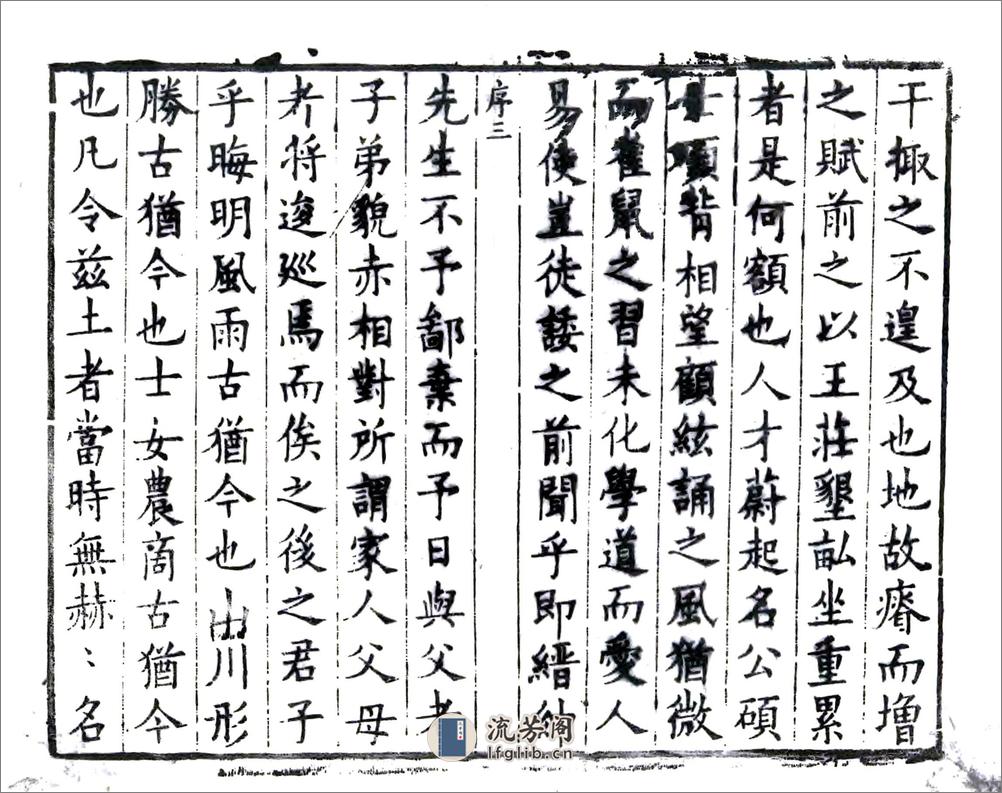 干掫之不遑及也地故瘠而增
之賦前之以王莊墾畝坐重累
者是何額也人才蔚起名公碩
士項背相望顧絃誦之風猶微
而雀鼠之習未化學道而愛人
易使豈徒諉之前聞乎即縉紳
序三
先生不予鄙棄而予日與父老
子弟貌赤相對所謂家人父母
者將逡巡焉而俟之後之君子
乎晦明風雨古猶今也山川形
勝古猶今也士女農商古猶今
也凡令茲土者當時無赫〻名
流芳阁
lfglib.cn